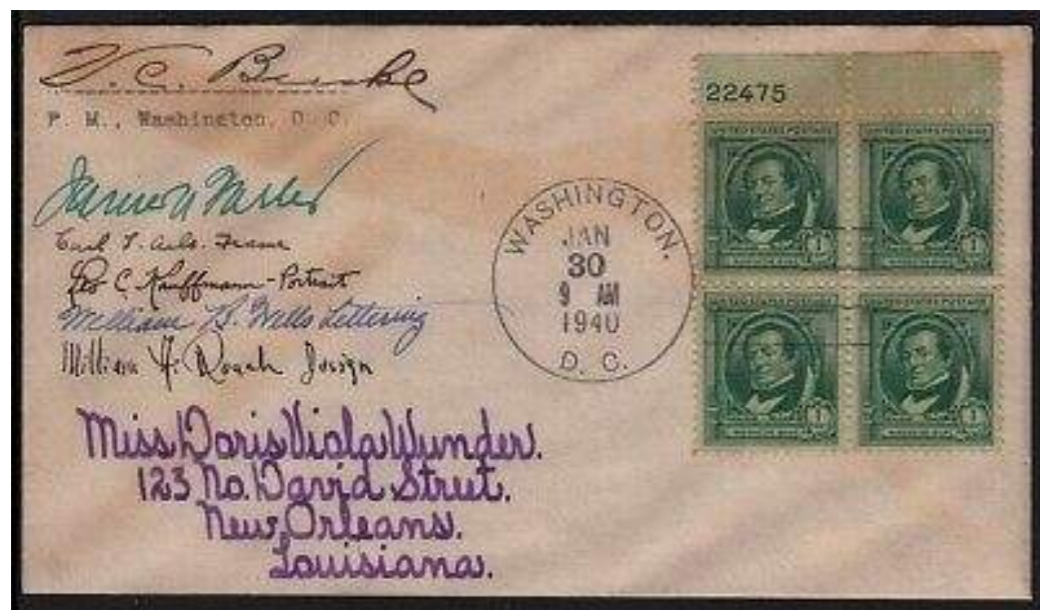 V. C. Burke
P. M., Washington, D. C.
Carl T. Arlt. Frame
Leo C. Kauffmann - Portrait
William B. Wells Lettering
William A. Roach Design
Miss Doris Viola Wunder.
123 No. David Street.
New Orleans.
Louisiana.
WASHINGTON,
JAN
30
9 AM
1940
D. C.
22475
UNITED STATES POSTAGE
UNITED STATES POSTAGE
1
1
UNITED STATES POSTAGE
UNITED STATES POSTAGE
1
1